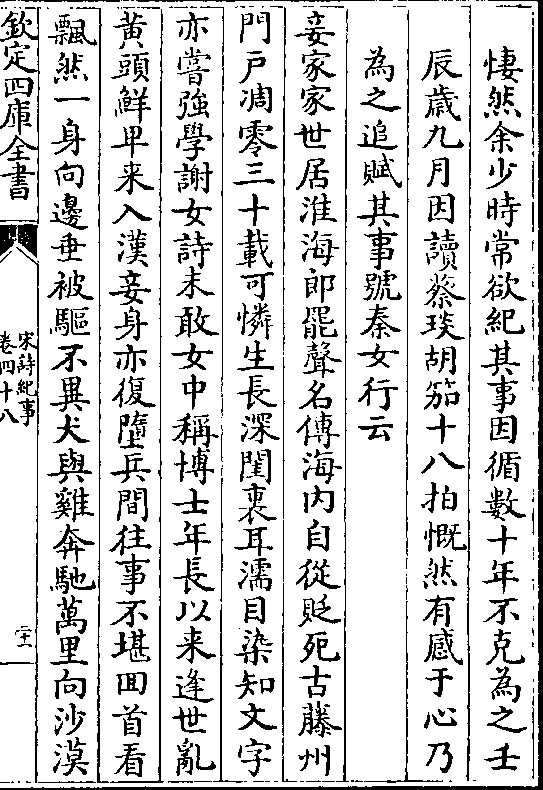 悽然余少時常欲紀其事因循數十年不克為之壬
辰歲九月因讀蔡琰胡笳十八拍慨然有感于心乃
為之追賦其事號秦女行云
妾家家世居淮海郎罷聲名傳海内自從貶死古藤州
門戶凋零三十載可憐生長深閨裏耳濡目染知文字
亦嘗強學謝女詩未敢女中稱博士年長以来逢世亂
黄頭鮮卑来入漢妾身亦復墮兵間往事不堪囬首看
飄然一身向邊垂被驅不異犬與雞奔馳萬里向沙漠
欽定四庫全書
宋詩紀事
卷四十八
二十一